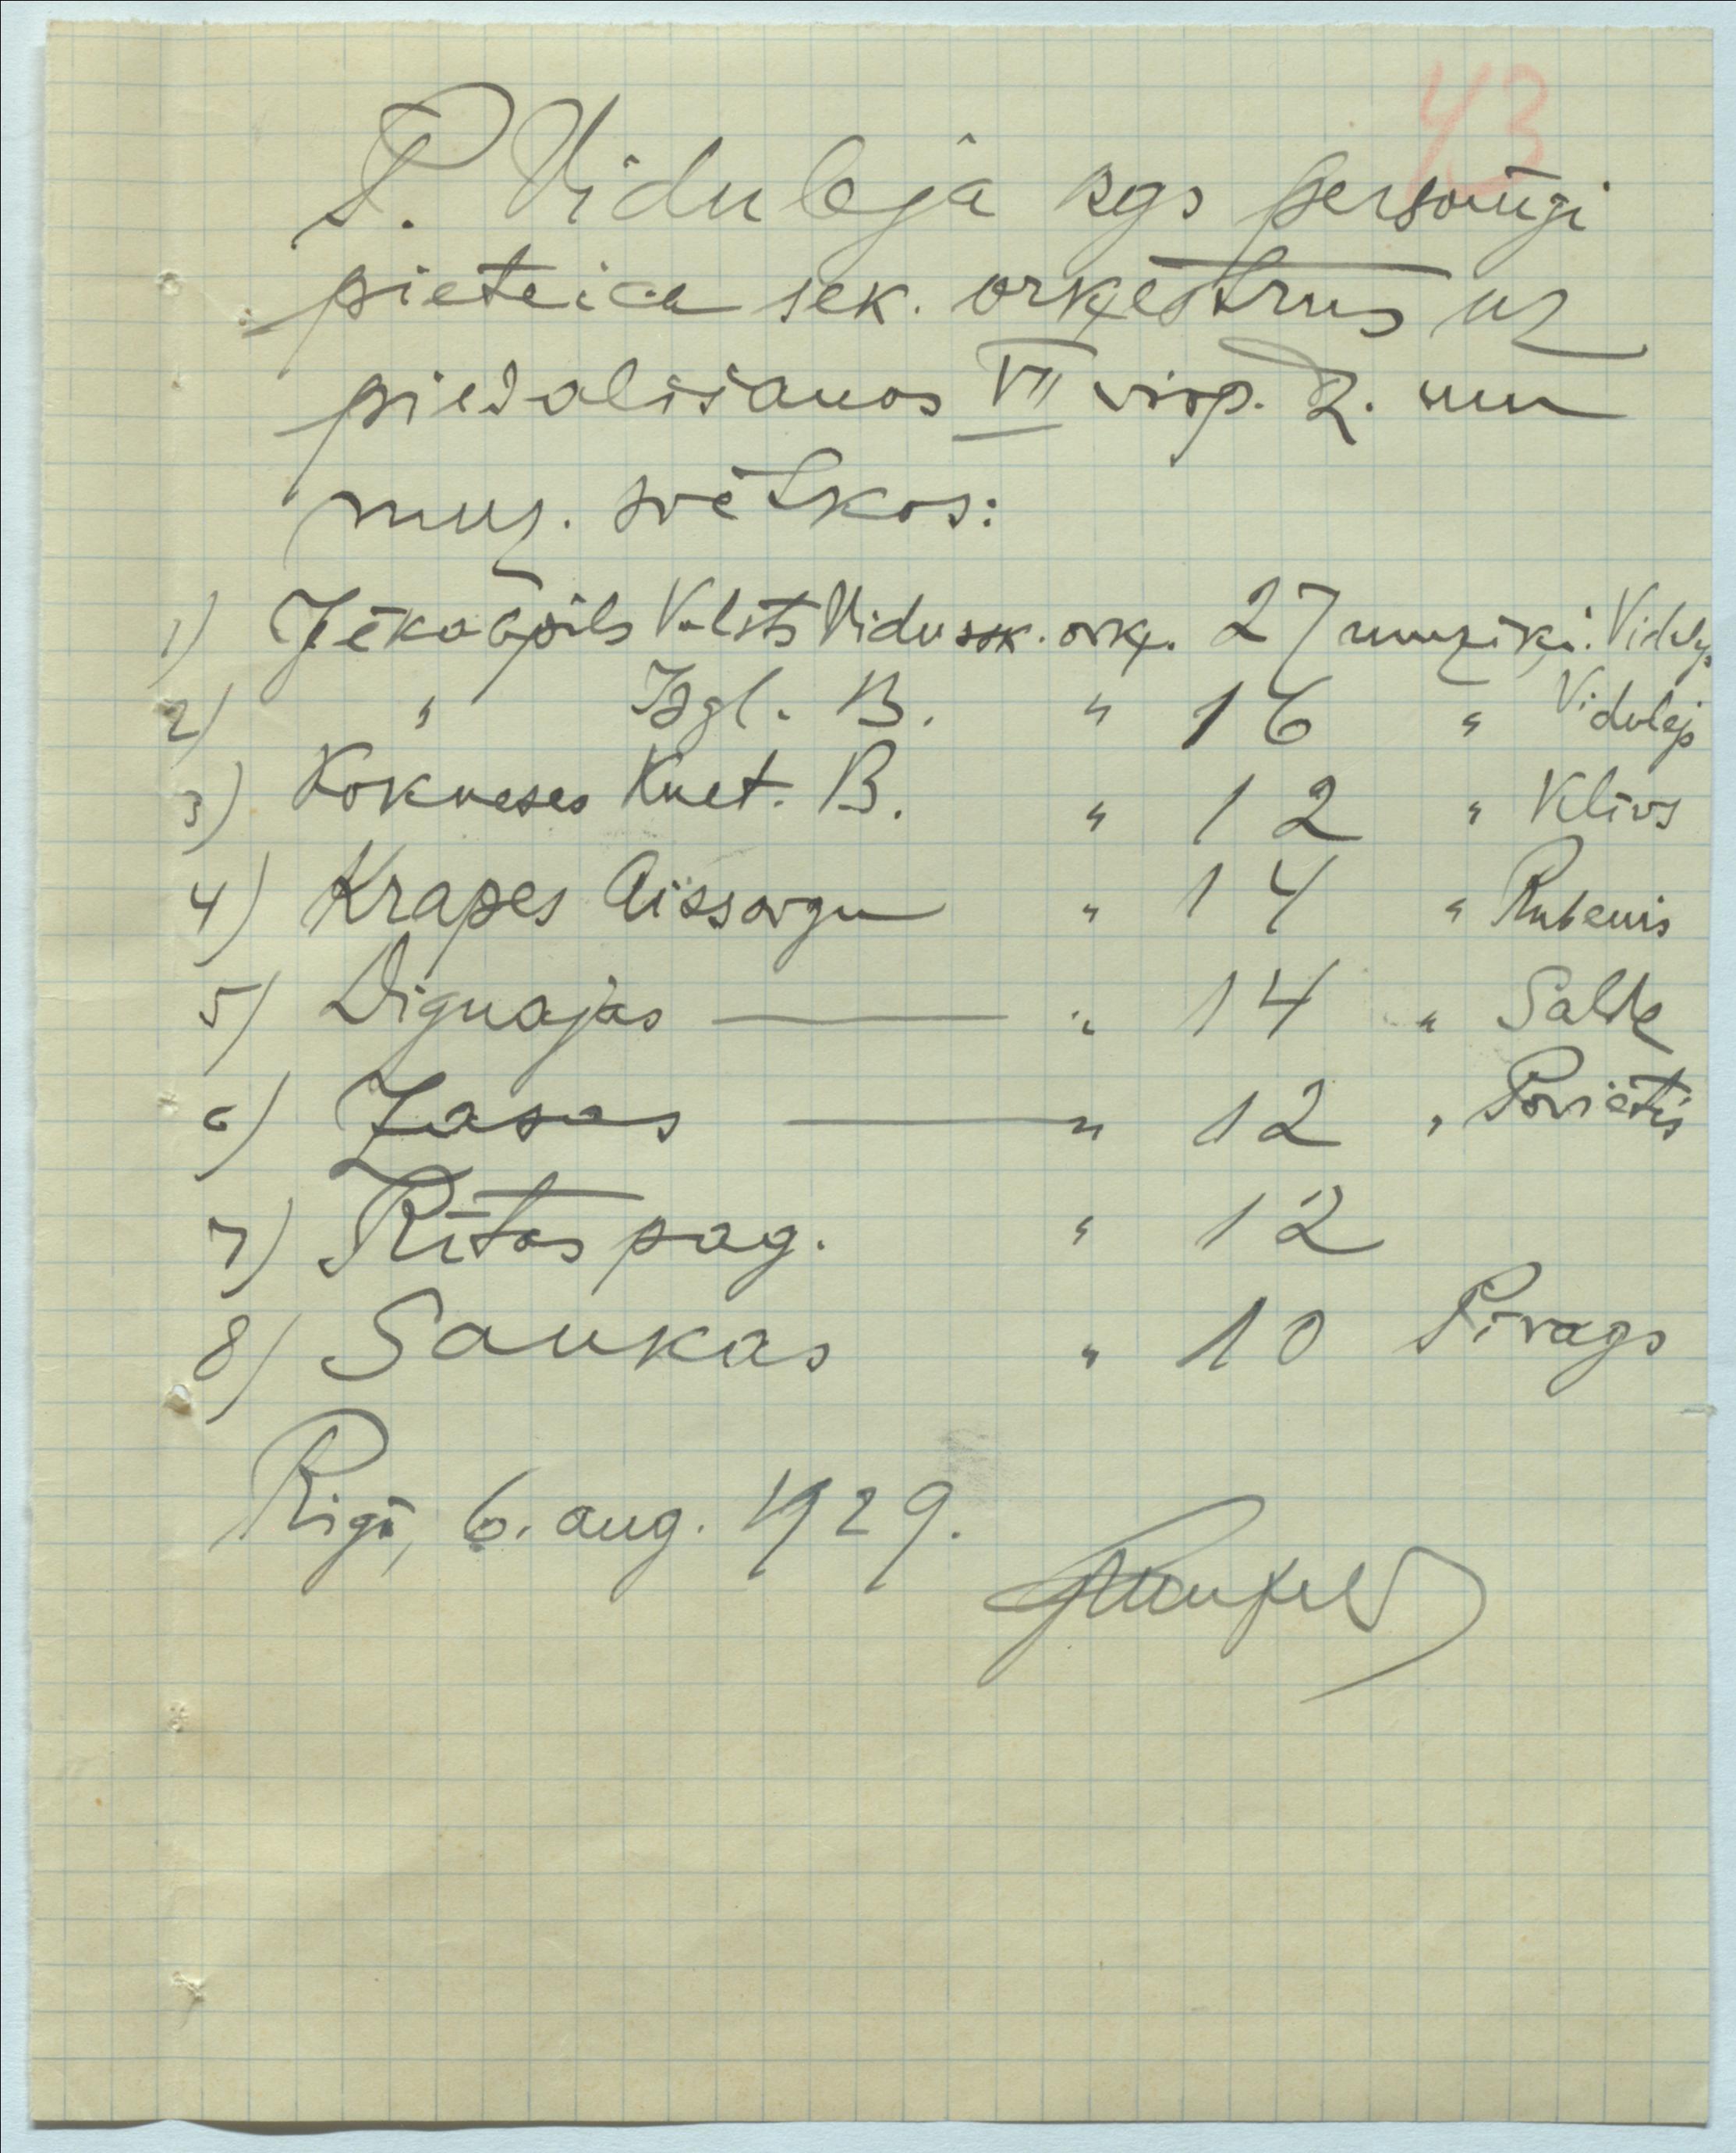 43
P. Vidulejā kgs personīgi
pieteica sek. orķestrus uz
piedalīšanos VII visp. dz. un
muz. svētkos:
1) Jēkabpils Valsts Vidussk. orķ. 27 muziķi. Vidulejs
2) " Izgl. B. " 16 " Vidulejs
3) Kokneses Kult. B. " 12 " Klīvs
4) Krapes Aissargu " 14 " Rubenis
5) Dignajas —— " 14 " Salte
6) Zasas —— " 12 " Povietis
7) Rītas pag. " 12
8) Saukas " 10 Pīrags
Rīgā, 6. aug. 1929.